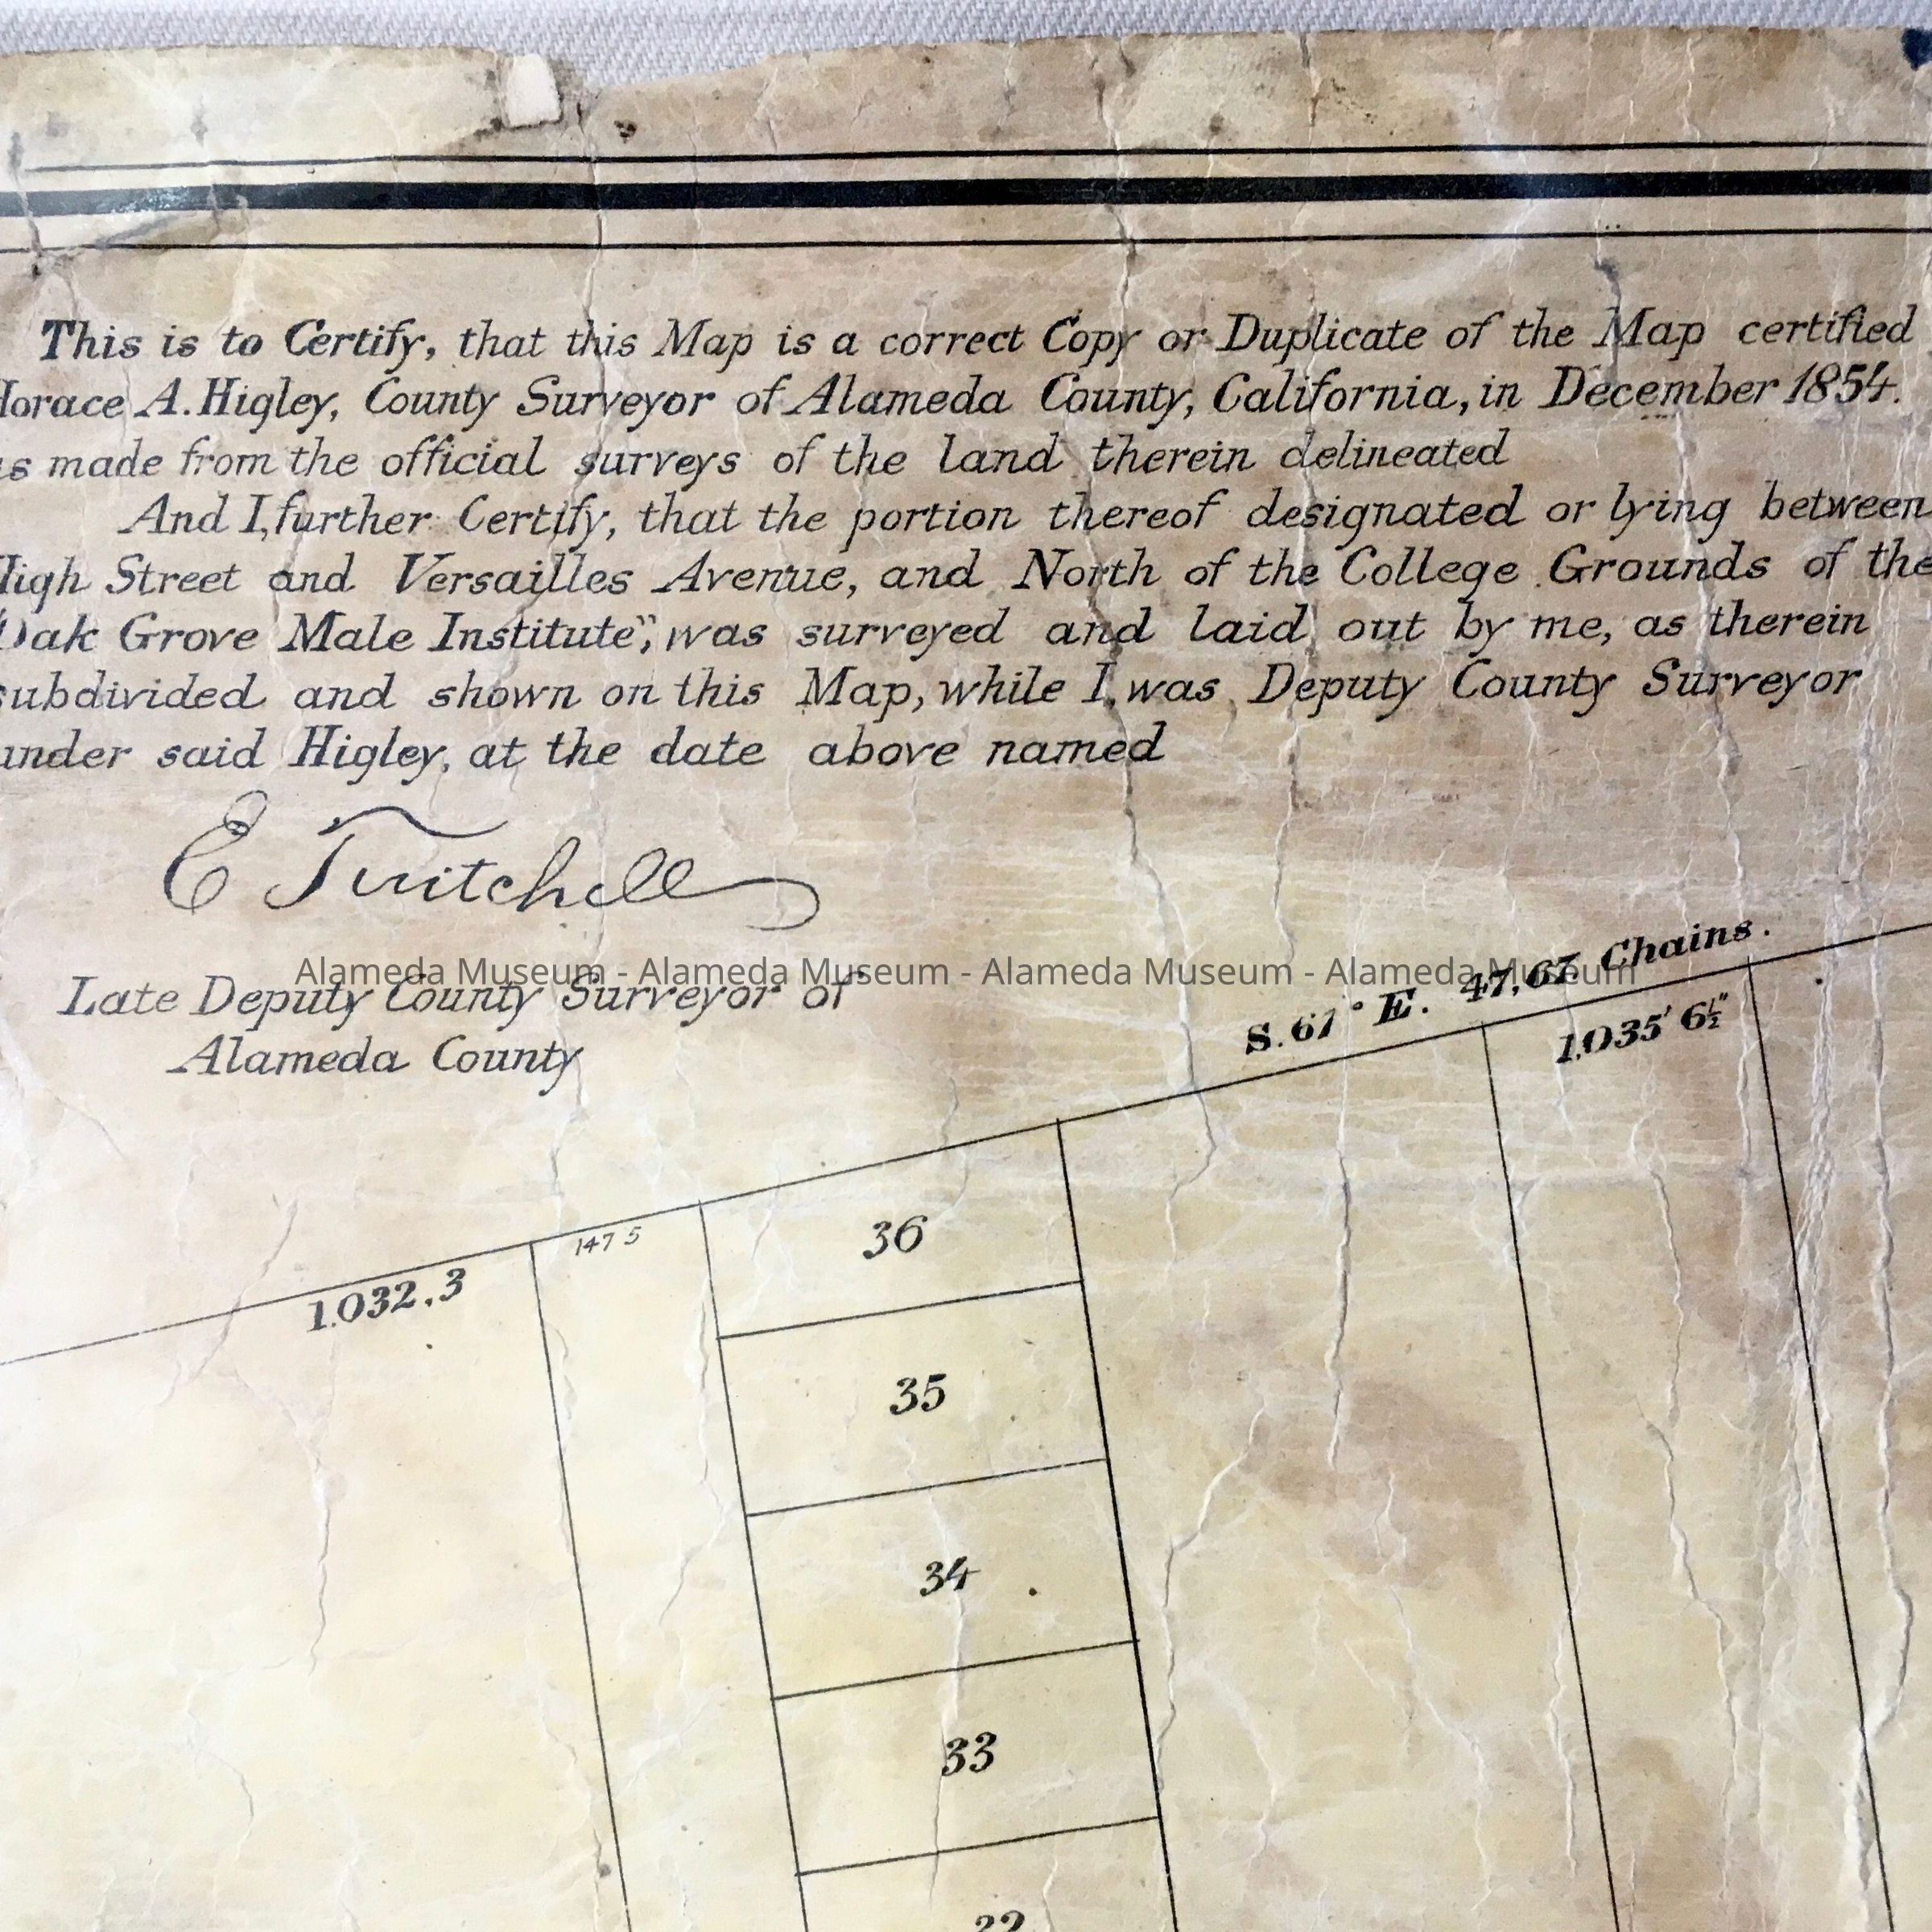 This is to Certify, that this Map is a correct Copy or Duplicate of the Map certified
Horace A. Higley, County Surveyor of Alameda County, California, in December 1854.
s made from the official surveys of the land therein delineated
And I, further Certify, that the portion thereof designated or lying between
High Street and Versailles Avenue, and North of the College Grounds of the
"Oak Grove Male Institute", was surveyed and laid out by me, as therein
subdivided and shown on this Map, while I, was Deputy County Surveyor
under said Higley, at the date above named
E Twitchell
Alameda Museum - Alameda Museum - Alameda Museum - Alameda Museum
Late Deputy County Surveyor of
Alameda County
S. 61° E. 47,67 Chains.
1.035' 6½"
36
147 5
1.032.3
35
34
33
32